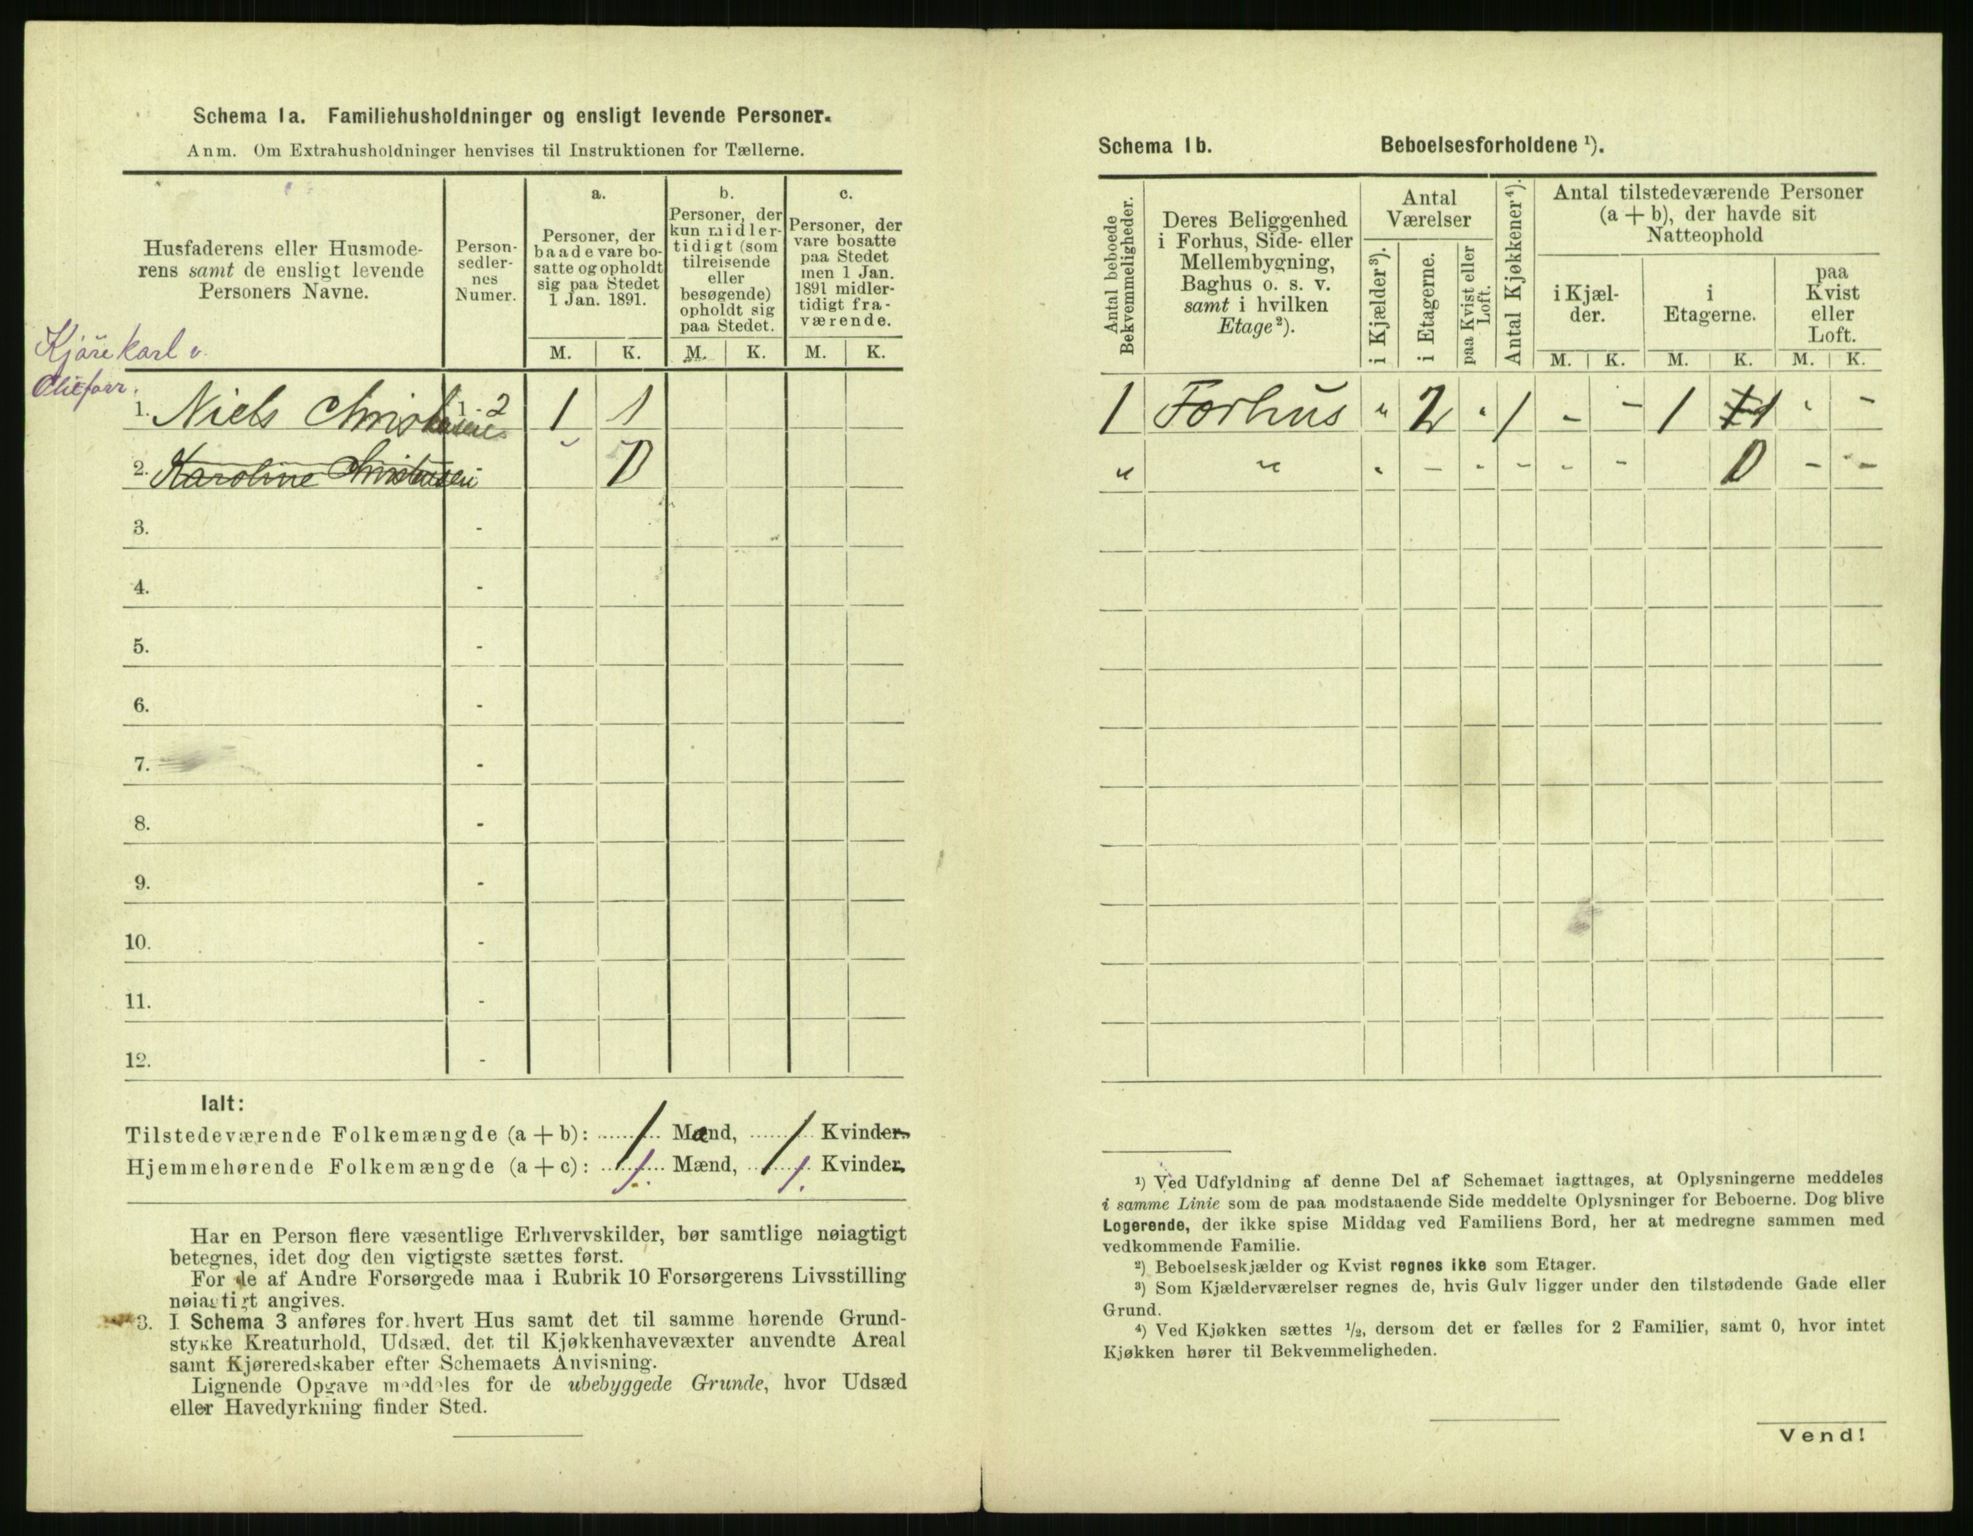 Schema 1a. Familiehusholdninger og ensligt levende Personer.
Anm. Om Extrahusholdninger henvises til Instruktionen for Tællerne.
Husfaderens eller Husmode-
rens samt de ensligt levende
Personers Navne.
Person-
sedler-
nes
Numer.
a.
Personer, der
baade vare bo-
satte og opholdt
sig paa Stedet
1 Jan. 1891.
b.
Personer, der
kun midler-
tidigt (som
tilreisende
eller
besøgende)
opholdt sig
paa Stedet.
c.
Personer, der
vare bosatte
paa Stedet
men 1 Jan.
1891 midler-
tidigt fra-
værende.
M. K. M. K. M. K.
Kjørekarl v.
1. Niels Christensen 1 - 2 1 1
2. Karoline Christensen 0
3. -
4. -
5. -
6. -
7. -
8. -
9. -
10. -
11. -
12. -
Ialt:
Tilstedeværende Folkemængde (a + b): 1 Mand, 1 Kvinder
Hjemmehørende Folkemængde (a + c): 1 Mænd, 1 Kvinder
Har en Person flere væsentlige Erhvervskilder, bør samtlige nøiagtigt
betegnes, idet dog den vigtigste sættes først.
For de af Andre Forsørgede maa i Rubrik 10 Forsørgerens Livsstilling
nøiagtigt angives.
3. I Schema 3 anføres for hvert Hus samt det til samme hørende Grund-
stykke Kreaturhold, Udsæd, det til Kjøkkenhavevæxter anvendte Areal
samt Kjøreredskaber efter Schemaets Anvisning.
Lignende Opgave meddeles for de ubebyggede Grunde, hvor Udsæd
eller Havedyrkning finder Sted.
Schema 1b. Beboelsesforholdene ¹).
Antal beboede
Bekvemmeligheder.
Deres Beliggenhed
i Forhus, Side- eller
Mellembygning,
Baghus o. s. v.
samt i hvilken
Etage²).
Antal
Værelser
i Kjælder³).
i Etagerne.
paa Kvist eller
Loft.
Antal Kjøkkener⁴).
Antal tilstedeværende Personer
(a + b), der havde sit
Natteophold
i Kjæl-
der.
i
Etagerne.
paa
Kvist
eller
Loft.
M. K. M. K. M. K.
1 Forhus " 2 " 1 - - 1 1 " -
" " " - - - - - 0 - -
¹) Ved Udfyldning af denne Del af Schemaet iagttages, at Oplysningerne meddeles
i samme Linie som de paa modstaaende Side meddelte Oplysninger for Beboerne. Dog blive
Logerende, der ikke spise Middag ved Familiens Bord, her at medregne sammen med
vedkommende Familie.
²) Beboelseskjælder og Kvist regnes ikke som Etager.
³) Som Kjælderværelser regnes de, hvis Gulv ligger under den tilstødende Gade eller
Grund.
⁴) Ved Kjøkken sættes ½, dersom det er fælles for 2 Familier, samt 0, hvor intet
Kjøkken hører til Bekvemmeligheden.
Vend!